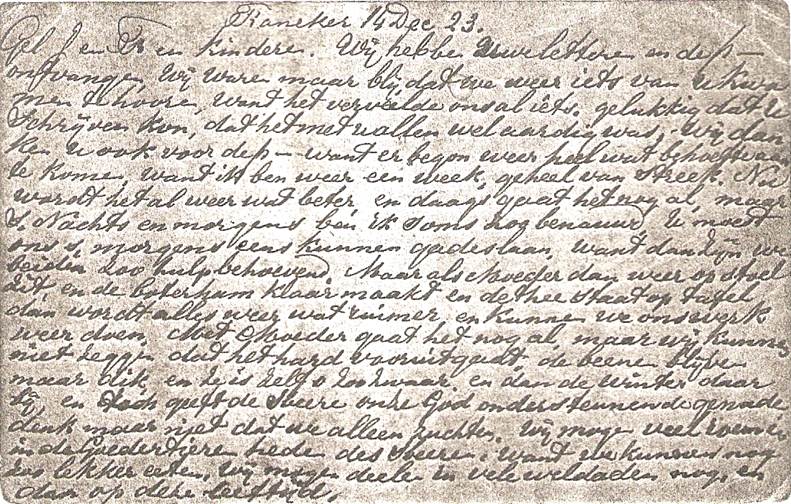 Franeker 14 Dec. 23.
Gel J en Fr en kindere. Wij hebbe Uwe lettere en de p—
ontvangen, Wij waren maar blij, dat we weer iets van u kwa
men te hoore, want het verveelde ons al iets. gelukkig dat U
Schrijven kon, dat het met u allen wel aardig was, wij dan
ken u ook voor de p— want er begon weer heel wat behoefte aan
te kome, want ik ben weer een week, geheel van streek. Nu
wordt het al weer wat beter, en daags gaat het nog al, maar
s, Nachts en morgens ben ik soms nog benauwd. U moest
ons s, morgens eens kunnen gadeslaan, want dan zijn we
beiden zoo hulpbehoevend. Maar als Moeder dan weer op stoel
zit, en de boterham klaar maakt en de thee staat op tafel
dan wordt alles weer wat ruimer, en kunne we ons werk
weer doen, Met Moeder gaat het nog al, maar wij kunne
niet zegge dat het hard vooruitgaat. de beene blijve
maar dik, en ze is zelf o zoo zwaar. en dan de winter daar
bij, en toch geeft de Heere onze God ondersteunende genade
denk maar niet dat we alleen zuchte. Wij moge veel roeme
in de Goedertiere hede des Heere. Want we kunnen nog
zus lekker eeten, wij moge deele in vele weldaden nog, en
dan op deze leeftijd.